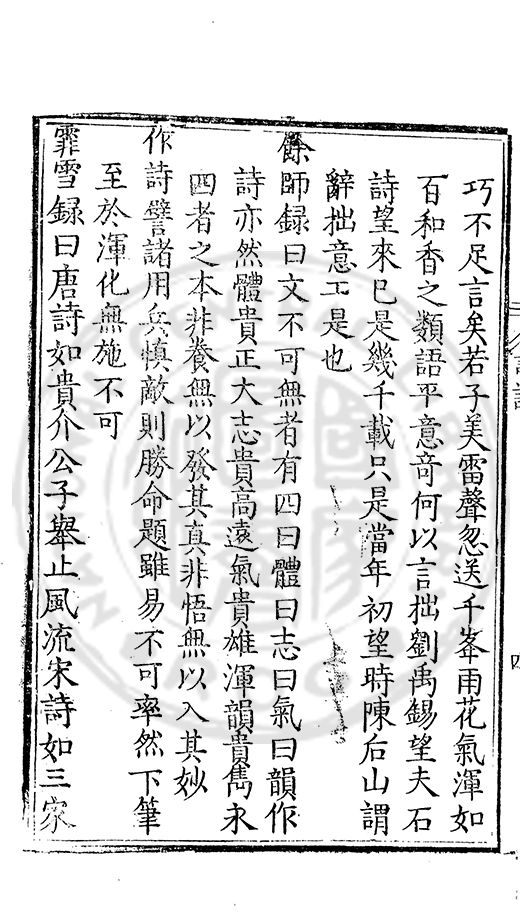 巧不足言矣若子美雷聲忽送千峯雨花氣渾如
百和香之類語平意竒何以言拙劉禹錫望夫石
詩望來巳是幾千載只是當年初望時陳后山謂
辭拙意工是也
餘師録曰文不可無者有四曰體曰志曰氣曰韻作
詩亦然體貴正大志貴高遠氣貴雄渾韻貴雋永
四者之本非養無以發其真非悟無以入其妙
作詩譬諸用兵慎敵則勝命題雖易不可率然下筆
至於渾化無施不可
霏雪録曰唐詩如貴介公子舉止風流宋詩如三家